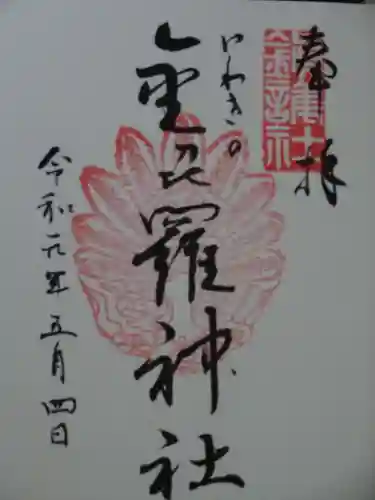 奉拝
いわき。
金毘羅神社
令和元年五月四日